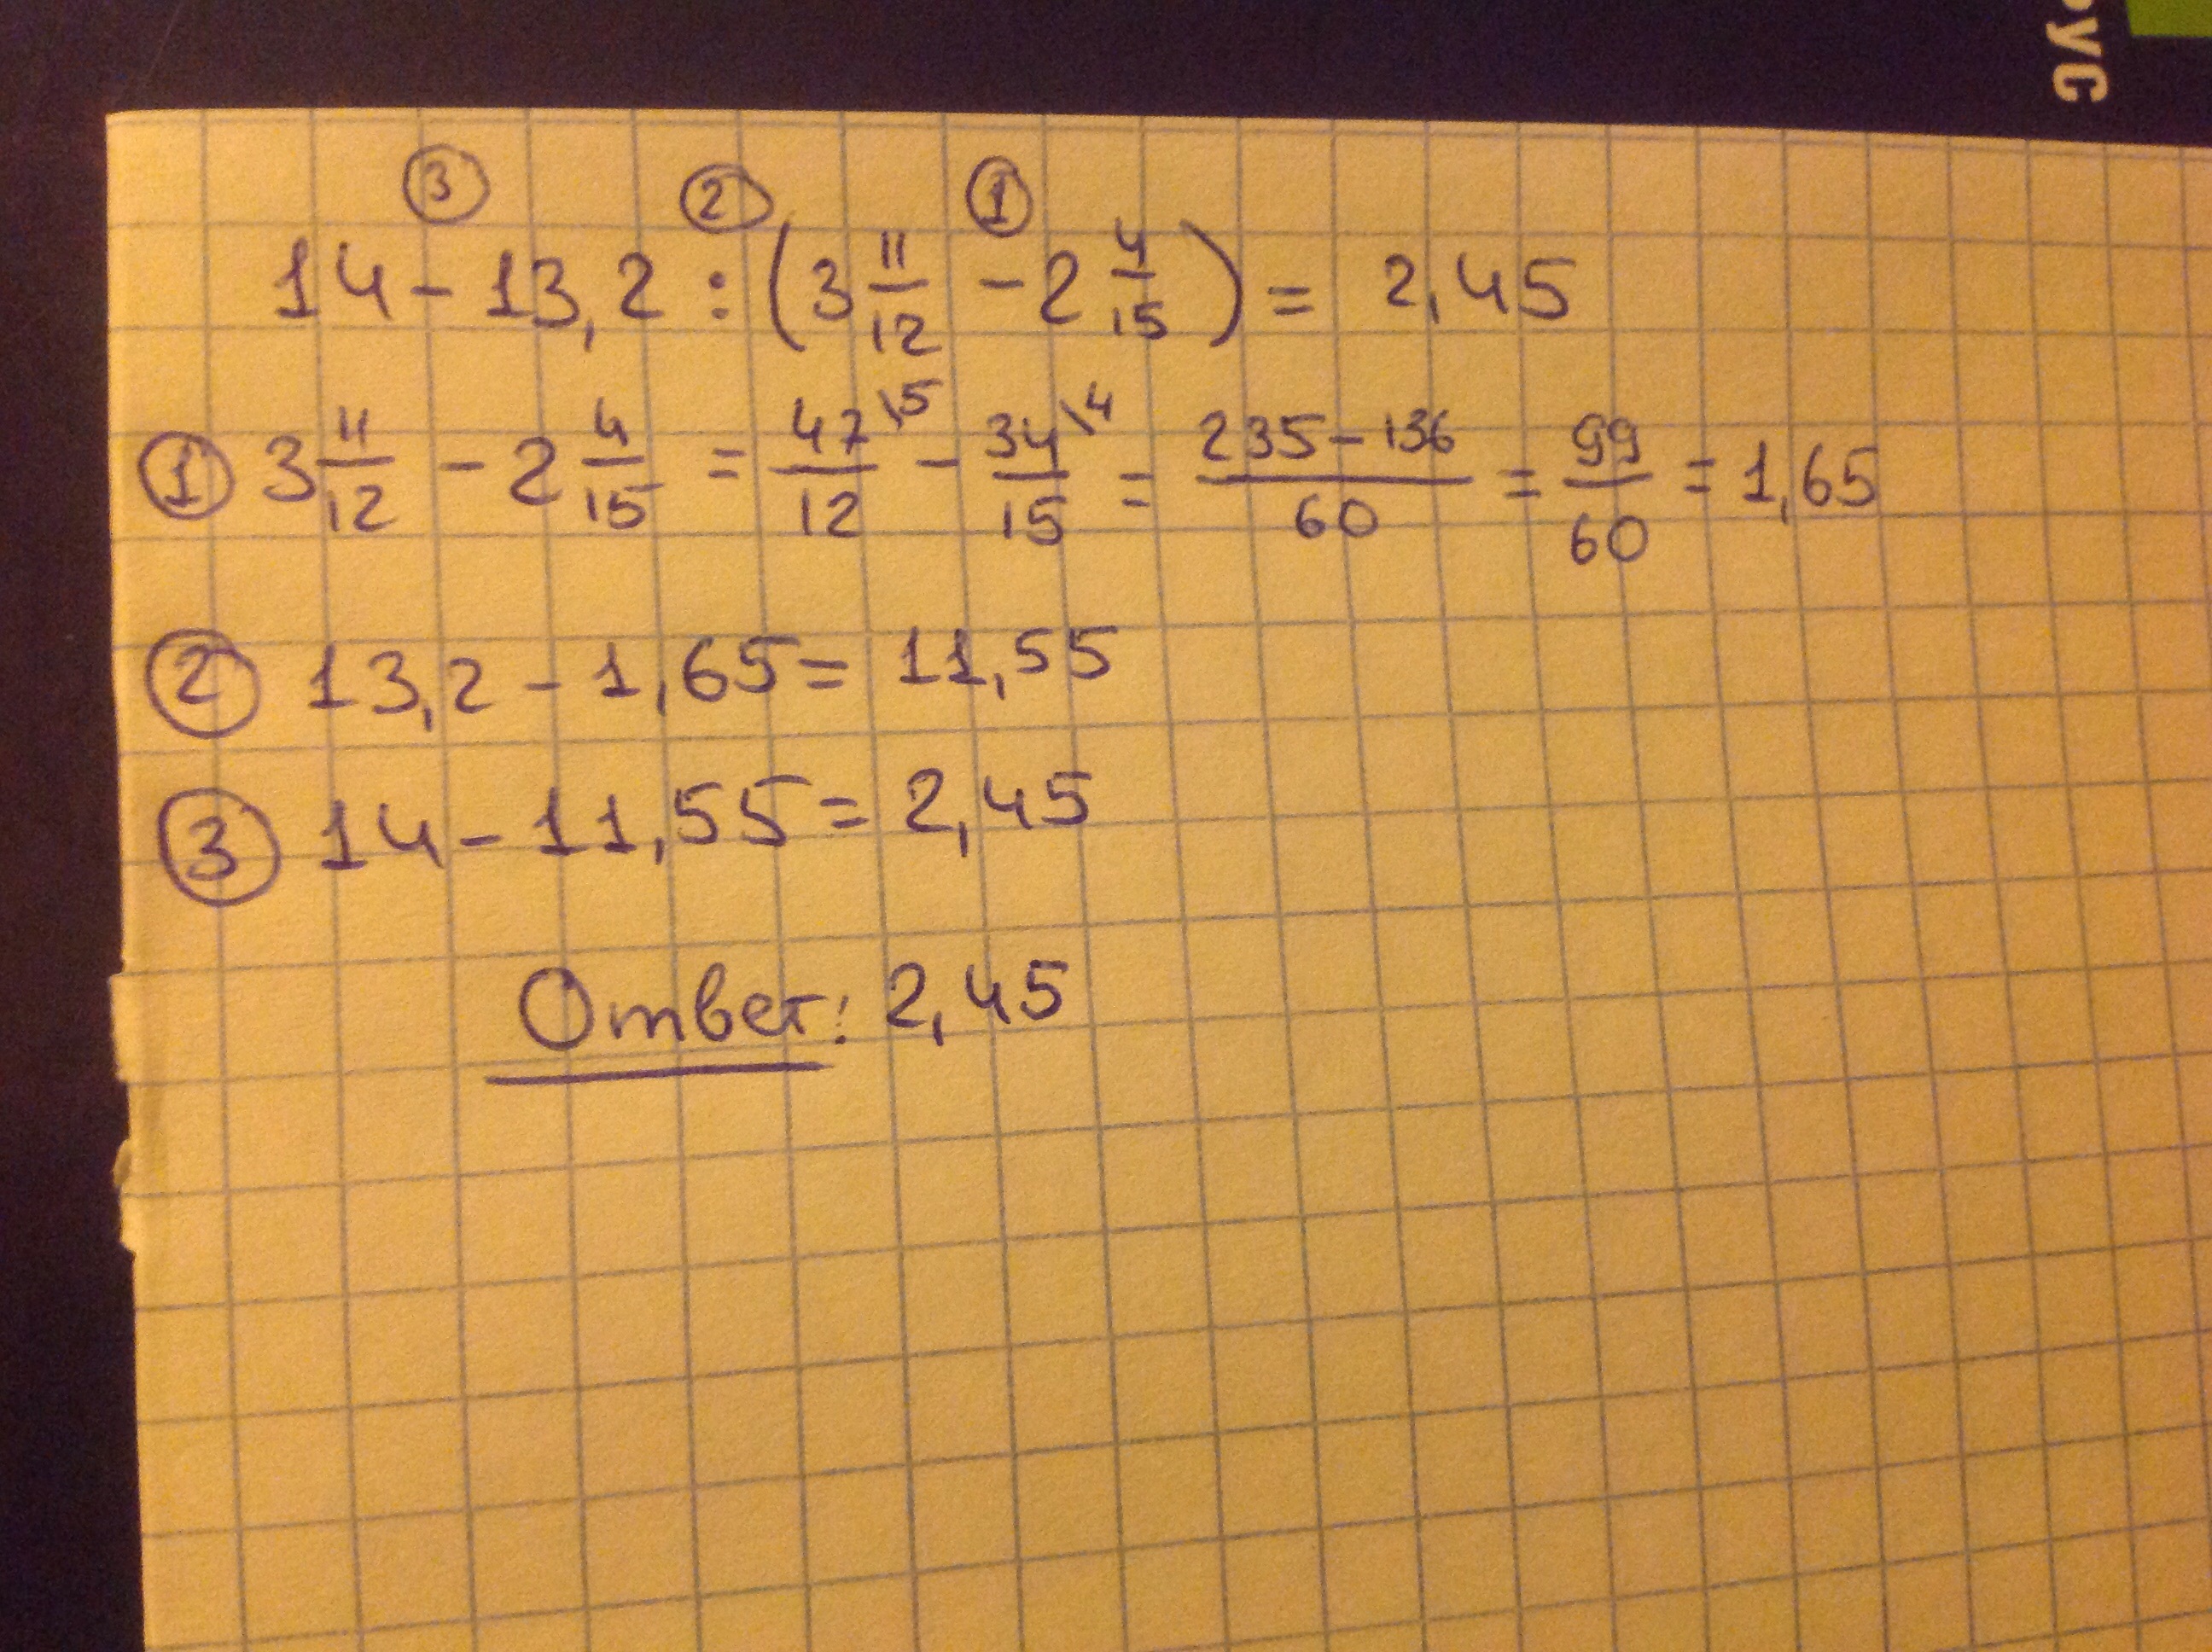 рус
③ ② ①
14 - 13,2 : (3 11/12 - 2 4/15) = 2,45
① 3 11/12 - 2 4/15 = 47\5/12 - 34\4/15 = 235-136/60 = 99/60 = 1,65
② 13,2 - 1,65 = 11,55
③ 14 - 11,55 = 2,45
Ответ: 2,45